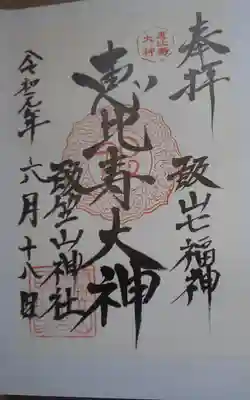 奉拝
飯山七福神
恵比寿大神
飯笠山神社
令和元年六月十八日